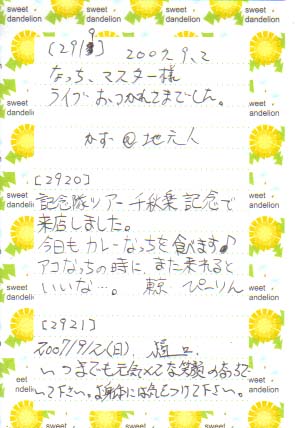 sweet dandelion
[2919]
2007.9.2
なっち、マスター様
ライブおつかれさまでした。
かず@地元人
[2920]
記念隊ツアー千秋楽記念で
来店しました。
今日もカレーなっちを食べます♪
アコなっちの時にまた来れると
いいな…。 東京 ぴーりん
[2921]
2007/9/2(日)
いつまでも元気××な笑顔のなっちで
いて下さい。お身体には気をつけて下さい。